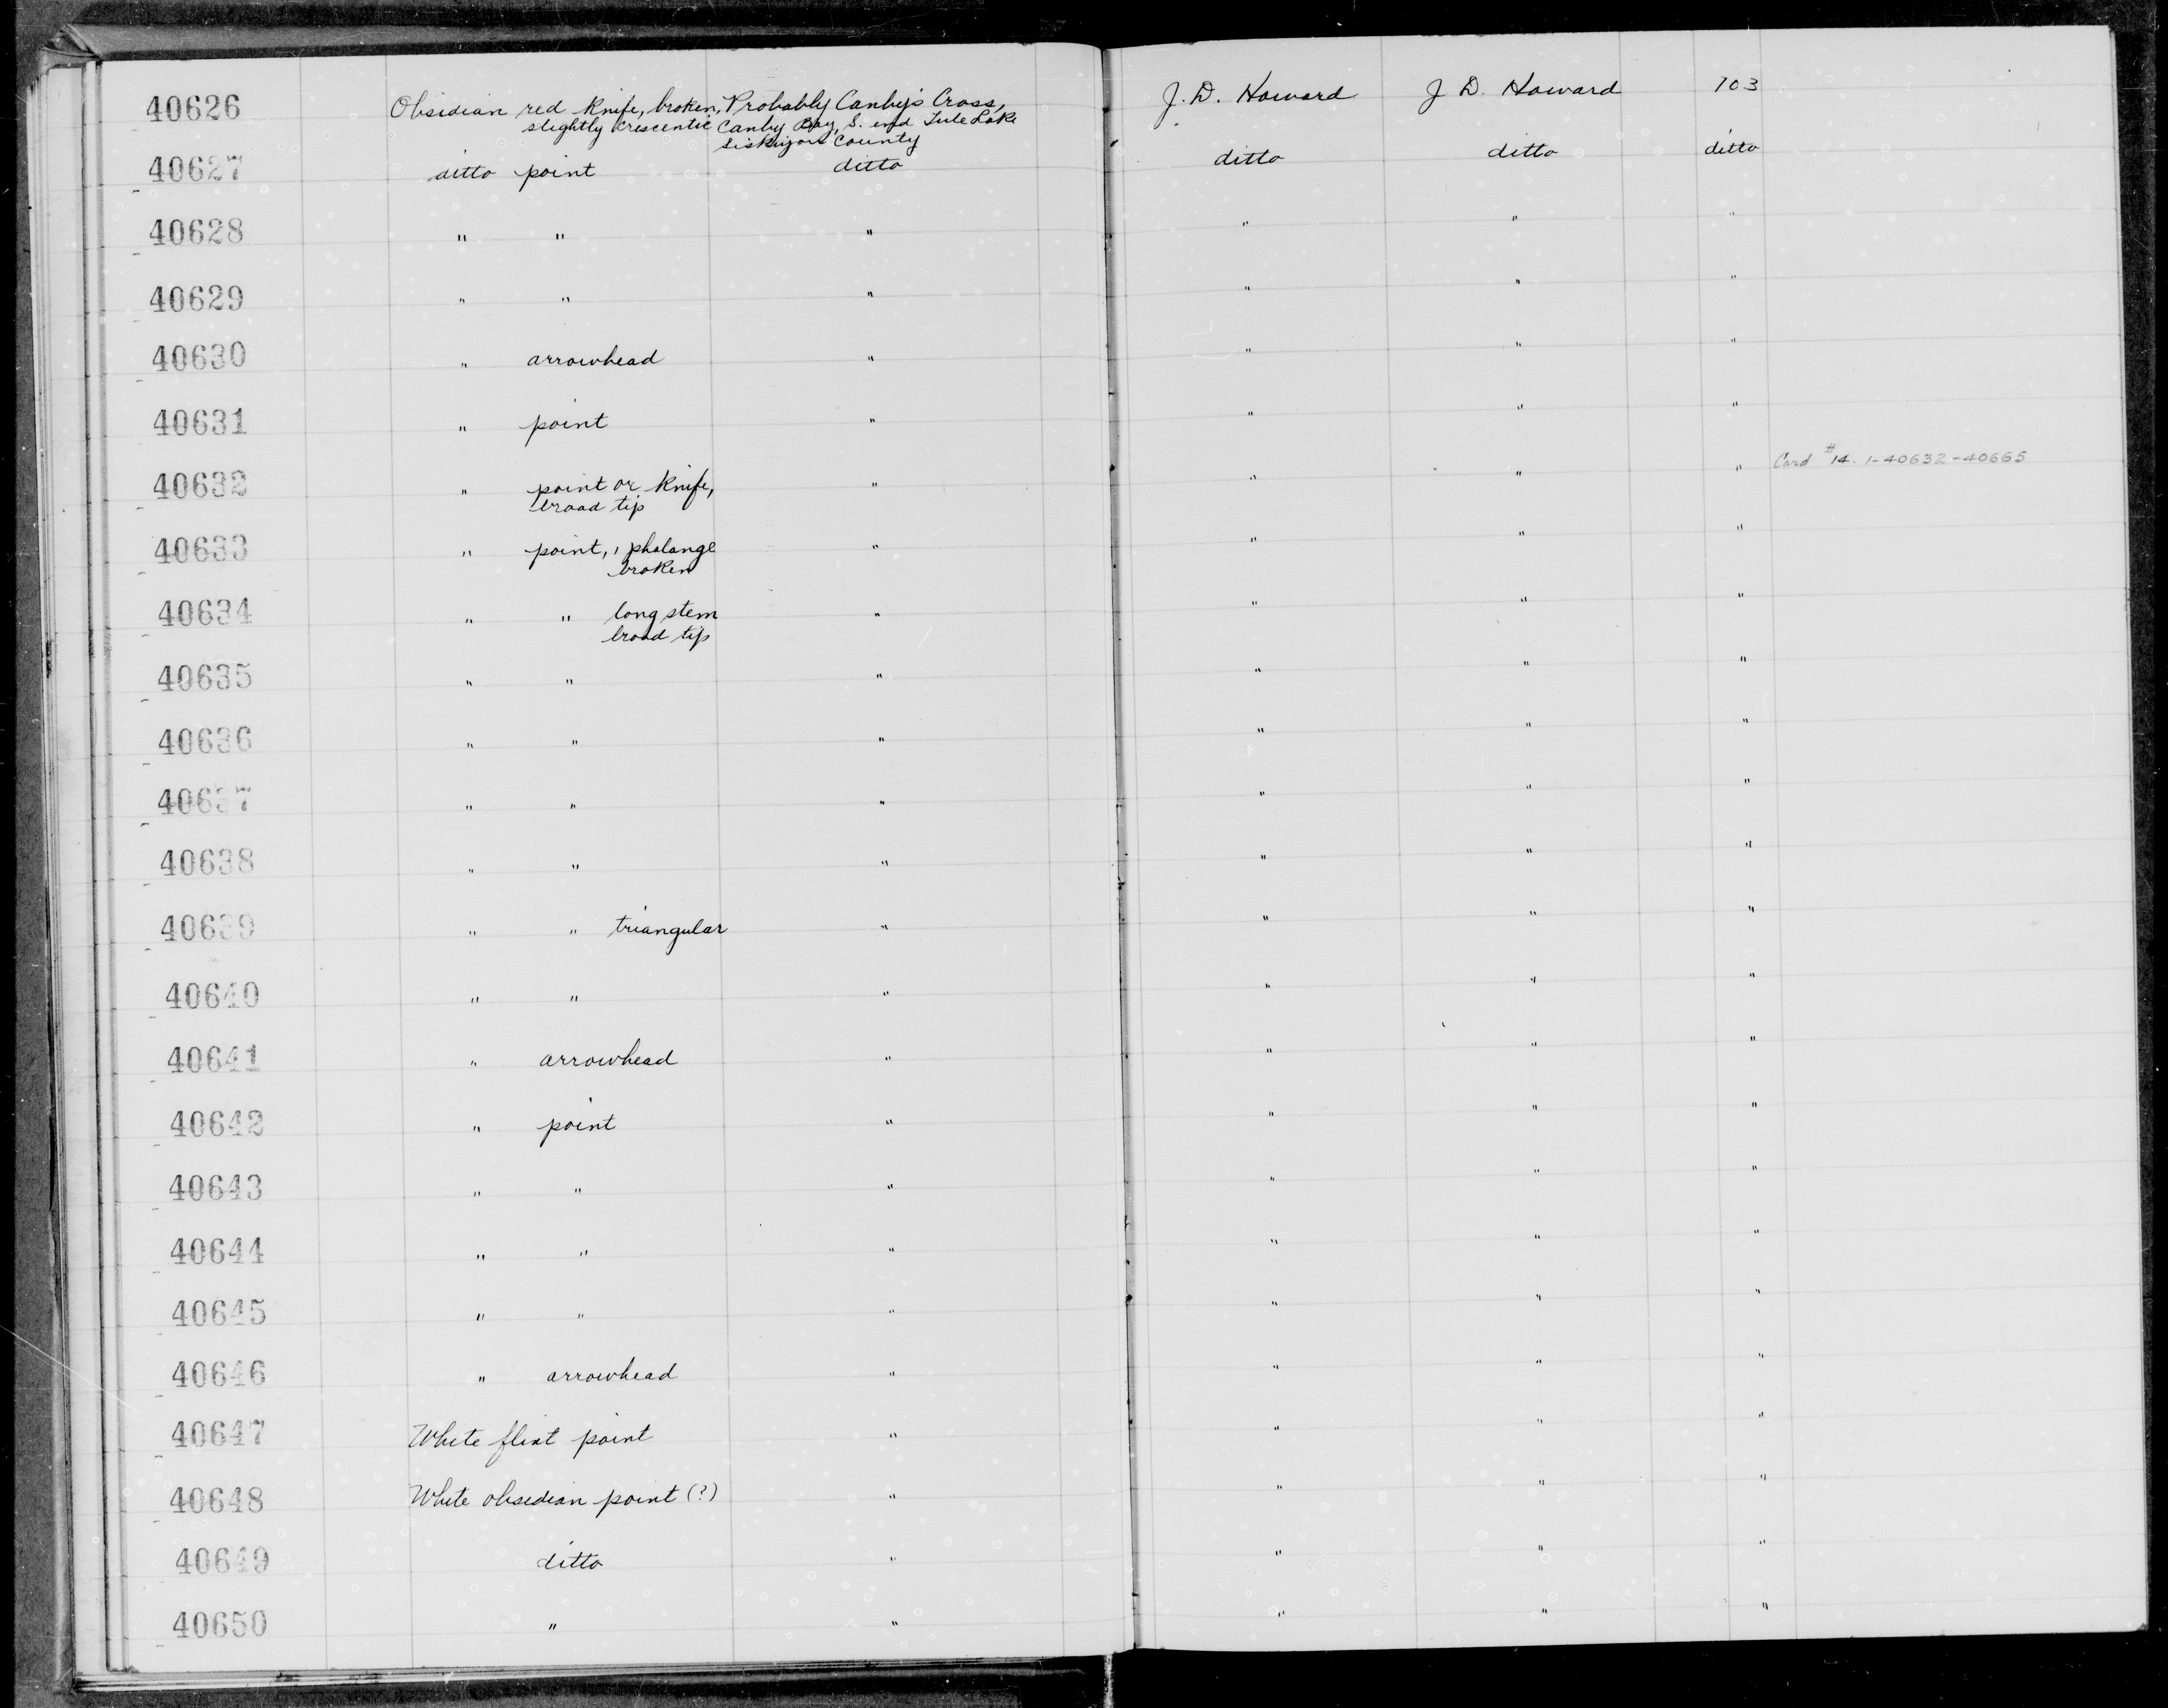 40626 Obsidian red knife, broken, Probably Canby's Cross, J. D. Howard J D. Howard 103
slightly crescentic Canby Bay, S. end Tule Lake
Siskiyou County
40627 ditto point ditto ditto ditto ditto
40628 " " " " " "
40629 " " " " " "
40630 " arrowhead " " " "
40631 " point " " " "
40632 " point or knife, " " " " Card #14. 1-40632-40665
broad tip
40633 " point, 1 phalange " " " "
broken
40634 " " long stem " " " "
broad tip
40635 " " " " " "
40636 " " " " " "
40637 " " " " " "
40638 " " " " " "
40639 " " triangular " " " "
40640 " " " " " "
40641 " arrowhead " " " "
40642 " point " " " "
40643 " " " " " "
40644 " " " " " "
40645 " " " " " "
40646 " arrowhead " " " "
40647 White flint point " " " "
40648 White obsidian point (?) " " " "
40649 ditto " " " "
40650 " " " " "